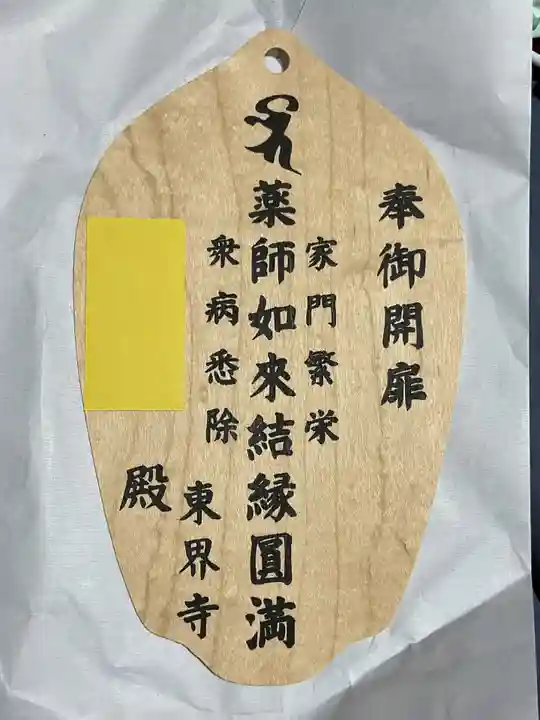 奉御開扉
家門繁栄
薬師如來結縁圓満
衆病悉除
東界寺
殿